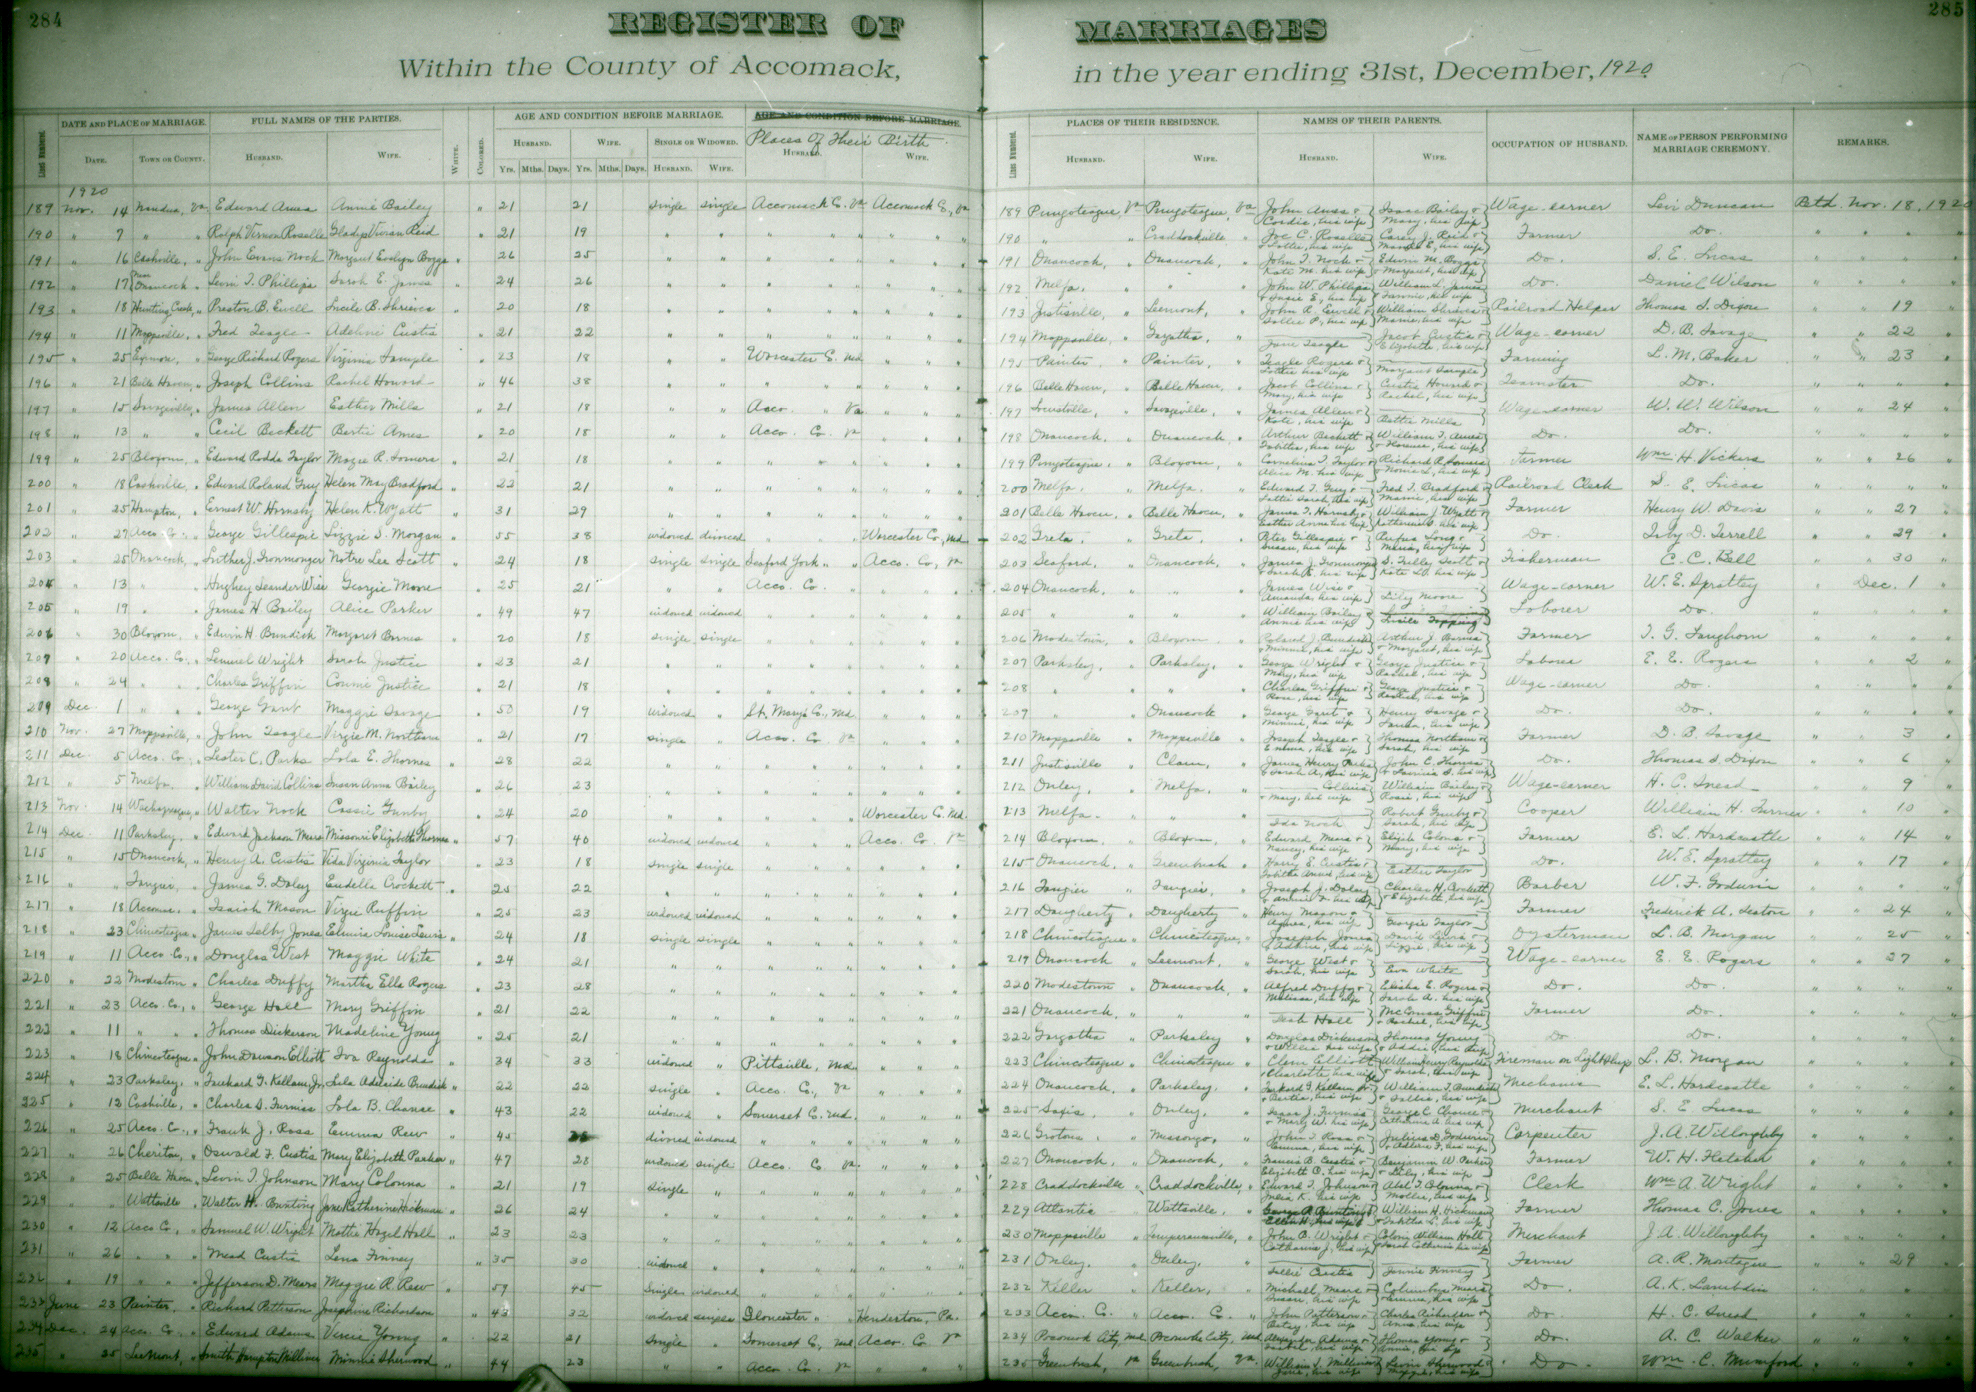 284
REGISTER OF MARRIAGES
285
Within the County of Accomack, in the year ending 31st, December, 1920
LINE NUMBER. DATE AND PLACE OF MARRIAGE. FULL NAMES OF THE PARTIES. WHITE. COLORED. AGE AND CONDITION BEFORE MARRIAGE. AGE AND CONDITION BEFORE MARRIAGE.
Places Of Their Birth
DATE. TOWN OR COUNTY. HUSBAND. WIFE. HUSBAND. WIFE. SINGLE OR WIDOWED. HUSBAND. WIFE.
Yrs. Mths. Days. Yrs. Mths. Days. HUSBAND. WIFE.
LINE NUMBER. PLACES OF THEIR RESIDENCE. NAMES OF THEIR PARENTS. OCCUPATION OF HUSBAND. NAME OF PERSON PERFORMING MARRIAGE CEREMONY. REMARKS.
HUSBAND. WIFE. HUSBAND. WIFE.
1920
189 Nov. 14 Nandua, Va Edward Ames Annie Bailey " 21 21 single single Accomack Co. Va Accomack Co., Va
190 " 7 " " Ralph Vernon Roselle Gladys Vivian Reid " 21 19
191 " 16 Cashville, " John Evans Nock Margaret Evelyn Boggs " 26 25
192 " 17 Near Onancock " Levin T. Phillips Sarah E. James " 24 26
193 " 18 Hunting Creek, " Preston B. Ewell Lucile B. Shrieves " 20 18
194 " 11 Mappsville, " Fred Teagle Adeline Custis " 21 22
195 " 25 Exmore, " George Richard Rogers Virginia Sample " 23 18 " " Worcester Co. Md
196 " 21 Belle Haven, " Joseph Collins Rachel Howard " 46 38
197 " 15 Savageville, " James Allen Esther Mills " 21 18 " " Acco. " Va
198 " 13 " " Cecil Beckett Bertie Ames " 20 18 " " Acco. Co. Va
199 " 25 Bloxom, " Edward Rodda Taylor Mazie R. Somers " 21 18
200 " 18 Cashville, " Edward Roland Guy Helen May Bradford " 23 21
201 " 25 Hampton, " Ernest W. Hornsby Helen K. Wyatt " 31 29
202 " 27 Acco Co., " George Gillespie Lizzie S. Morgan " 55 38 widowed divorced " " Worcester Co., Md
203 " 25 Onancock, " Luther J. Ironmonger Notre Lee Scott " 24 18 single single Seaford York " " Acco. Co., Va
204 " 13 " " Hughey Leander Wise Georgie Moore " 25 21 " " Acco. Co.
205 " 19 " " James H. Bailey Alice Parker " 49 47 widowed widowed
206 " 30 Bloxom, " Edwin H. Bundick Margaret Barnes " 20 18 single single
207 " 20 Acco. Co., " Lemuel Wright Sarah Justice " 23 21
208 " 24 " " Charles Griffin Connie Justice " 21 18
209 Dec. 1 " " George Gant Maggie Savage " 50 19 widowed " St. Mary's Co., Md.
210 Nov. 27 Mappsville, " John Teagle Vergie M. Northam " 21 17 single " Acco. Co. Va
211 Dec. 5 Acco. Co., " Lester C. Parks Lola E. Thornes " 28 22
212 " 5 Melfa, " William David Collins Susan Anna Bailey " 26 23
213 Nov. 14 Wachapreague, " Walter Nock Cassie Gunby " 24 20 " " Worcester Co. Md.
214 Dec. 11 Parksley, " Edward Jackson Mears Missouri Elizabeth Thornes " 57 40 widowed widowed " " Acco. Co. Va
215 " 15 Onancock, " Henry A. Custis Vida Virginia Taylor " 23 18 single single
216 " " Tangier, " James G. Daley Eudella Crockett " 25 22
217 " 18 Accomac, " Isaiah Mason Virgie Ruffin " 25 23 widowed widowed
218 " 23 Chincoteague, " James Selby Jones Elmira Louise Lewis " 24 18 single single
219 " 11 Acco Co., " Douglas West Maggie White " 24 21
220 " 22 Modestown " Charles Duffy Martha Ella Rogers " 23 28
221 " 23 Acco. Co., " George Hall Mary Griffin " 21 22
222 " 11 " " Thomas Dickerson Madeline Young " 25 21
223 " 18 Chincoteague, " John Dawson Elliott Iva Reynolds " 34 33 widowed " Pittsville, Md.
224 " 23 Parksley, " Lula Adelaide Bundick " 22 22 single " Acco. Co., Va
225 " 12 Cashville, " Charles S. Furniss Lola B. Chance " 43 22 widowed " Somerset Co. Md.
226 " 25 Acco. Co., " Frank J. Ross Emma Rew " 45 divorced widowed
227 " 26 Cheriton, " Oswald F. Custis Mary Elizabeth Parker " 47 28 widowed single Acco. Co. Va.
228 " 25 Belle Haven, " Levin T. Johnson Mary Colonna " 21 19 single
229 " " Wattsville " Walter H. Bunting Jane Katherine Hickman " 26 24
230 " 12 Acco Co., " Samuel W. Wright Mattie Hazel Hall " 23 23
231 " 26 " " Mead Custis Lena Finney " 35 30 widowed
232 " 19 " " Jefferson D. Mears Maggie R. Rew " 59 45 single widowed
233 June 23 Painter, " Richard Patterson Josephine Richardson " 43 32 widowed single Gloucester " " Henderton, Pa.
234 Dec. 24 Acco. Co. " Edward Adams Versie Young " 22 21 single " Somerset Co., Md Acco. Co. Va
235 " 25 Leemont, " Minnie Sherwood " 44 23 " " Acco. Co. Va
189 Pungoteague, Va Pungoteague, Va John Ames & Cordie, his wife Isaac Bailey & Mary, his wife Wage-earner Levi Duncan Retd. Nov. 18, 1920
190 " " Craddockville " Joe C. Roselle & Lottie, his wife Carey J. Reid & his wife Farmer Do.
191 Onancock, " Onancock, " John T. Nock & Kate M. his wife Edwin M. Boggs & Margaret, his wife Do. S. E. Lucas
192 Melfa, " " " John W. Phillips & Susie E., his wife William S. James & Fannie, his wife Do. Daniel Wilson
193 Justisville, " Leemont, " John R. Ewell & Sallie P., his wife William Shrieves & Mamie, his wife Railroad Helper Thomas S. Dixon " " 19
194 Mappsville, " Gargatha, " Jane Teagle Jacob Custis & Elizabeth, his wife Wage-earner D. B. Savage " " 22
195 Painter " Painter, " Teagle Rogers & Lottie, his wife Margaret Sample Farming L. M. Baker " " 23
196 Belle Haven, " Belle Haven, " Jacob Collins & Mary, his wife Custis Howard & Rachel, his wife Teamster Do.
197 Locustville, " Savageville, " James Allen & Kate, his wife Bettie Mills Wage-earner W. W. Wilson " " 24
198 Onancock, " Onancock, " Arthur Beckett & Tabitha, his wife William T. Ames & Florence, his wife Do. Do.
199 Pungoteague, " Bloxom, " Cornelius T. Taylor & Alice M. his wife Richard R. Somers & his wife Farmer Wm. H. Vickers " " 26
200 Melfa, " Melfa, " Edward T. Guy & Lottie Sarah, his wife Fred T. Bradford & Mamie, his wife Railroad Clerk S. E. Lucas
201 Belle Haven, " Belle Haven, " James T. Hornsby & his wife William J. Wyatt & Katherine his wife Farmer Henry W. Davis " " 27
202 Greta, " Greta, " Peter Gillespie & Susan, his wife Rufus Long & Maria, his wife Do. Toby D. Terrell " " 29
203 Seaford, " Onancock, " James J. Ironmonger & Sarah R. his wife S. Tully Scott & his wife Fisherman C. C. Bell " " 30
204 Onancock, " " " James Wise & Amanda, his wife Lily Moore Wage-earner W. E. Spratley " Dec. 1
205 " " " " William Bailey & Annie his wife Lucile Topping Laborer Do.
206 Modestown, " Bloxom " Roland J. Bundick & Minnie, his wife Arthur J. Barnes & Margaret, his wife Farmer T. G. Langhorn
207 Parksley, " Parksley, " George Wright & Mary, his wife George Justice & Rachel, his wife Laborer E. E. Rogers " " 2
208 " " " " Charles Griffin & Rose, his wife George Justice & Rachel, his wife Wage-earner Do.
209 " " Onancock " George Gant & Minnie, his wife Henry Savage & his wife Do. Do.
210 Mappsville " Mappsville " Joseph Teagle & Emma, his wife Thomas Northam & Sarah, his wife Farmer D. B. Savage " " 3
211 Justisville " Clam, " James Henry Parks & Sarah A., his wife John E. Thornes & his wife Do. Thomas S. Dixon " " 6
212 Onley, " Melfa, " Collins & Mary, his wife William Bailey & Rosie, his wife Wage-earner H. C. Snead " " 9
213 Melfa " " " Ida Nock Robert Gunby & Sarah, his wife Cooper William H. Turner " " 10
214 Bloxom, " Bloxom, " Edward Mears & Nancy, his wife Elijah Colona & Mary, his wife Farmer E. L. Hardcastle " " 14
215 Onancock, " Greenbush " Harry E. Custis & his wife Esther Taylor Do. W. E. Spratley " " 17
216 Tangier " Tangier, " Joseph J. Daley & Annie his wife Charles H. Crockett & Elizabeth, his wife Barber W. F. Godwin
217 Daugherty " Daugherty " Henry Mason & Agnes, his wife Georgie Taylor Farmer Frederick A. Seaton " " 24
218 Chincoteague " Chincoteague, " Joseph Jones & his wife David Lewis & Lizzie, his wife Oysterman L. B. Morgan " " 25
219 Onancock " Leemont, " George West & Sarah, his wife Eva White Wage-earner E. E. Rogers " " 27
220 Modestown " Onancock, " Alfred Duffy & Melissa, his wife Elisha E. Rogers & Sarah A. his wife Do. Do.
221 Onancock, " " " Leah Hall Griffin & Rachel, his wife Farmer Do.
222 Gargatha " Parksley " Douglas Dickerson & Willie his wife Thomas Young & Addie, his wife Do Do.
223 Chincoteague " Chincoteague " Clem Elliott & Charlotte, his wife William Henry Reynolds & Sarah, his wife Fireman on Light Ship L. B. Morgan
224 Onancock " Parksley, " & Bertha, his wife William T. Bundick & Sallie, his wife Mechanic E. L. Hardcastle
225 Saxis, " Onley, " Isaac J. Furniss & his wife George C. Chance & Catherine A. his wife Merchant S. E Lucas
226 Grotons, " Messongo, " John T. Ross & Emma, his wife Julius D. Godwin & his wife Carpenter J. A. Willoughby
227 Onancock, " Onancock, " Francis B. Custis & Elizabeth his wife Benjamin W. Parker & his wife Farmer W. H. Fletcher
228 Craddockville " Craddockville, " Edward T. Johnson & Julia K. his wife Abel T. Colonna & Mollie, his wife Clerk Wm. A Wright
229 Atlantic " Wattsville, " George R. Bunting & Ellen H. his wife William H. Hickman & Tabitha his wife Farmer Thomas C. Jones
230 Mappsville " Temperanceville, " John B. Wright & Catharine J. his wife William Hall & Sarah Catherine his wife Merchant J. A. Willoughby
231 Onley, " Onley, " Sallie Custis Jennie Finney Farmer A. R. Montague " " 29
232 Keller " Keller, " Michael Mears & Susan, his wife Columbus Mears & his wife Do. A. K. Lambdin
233 Acco. Co. " Acco. Co. " John Patterson & Betsy, his wife Charles Richardson & Anna his wife Do. H. C. Snead
234 Pocomoke City, Md. Pocomoke City, Md Alexander Adams & his wife Thomas Young & Annie, his wife Do. A. C. Walker
235 Greenbush, Va Greenbush, Va. William S. & Jane, his wife Levin Sherwood & his wife Do. Wm. C. Mumford